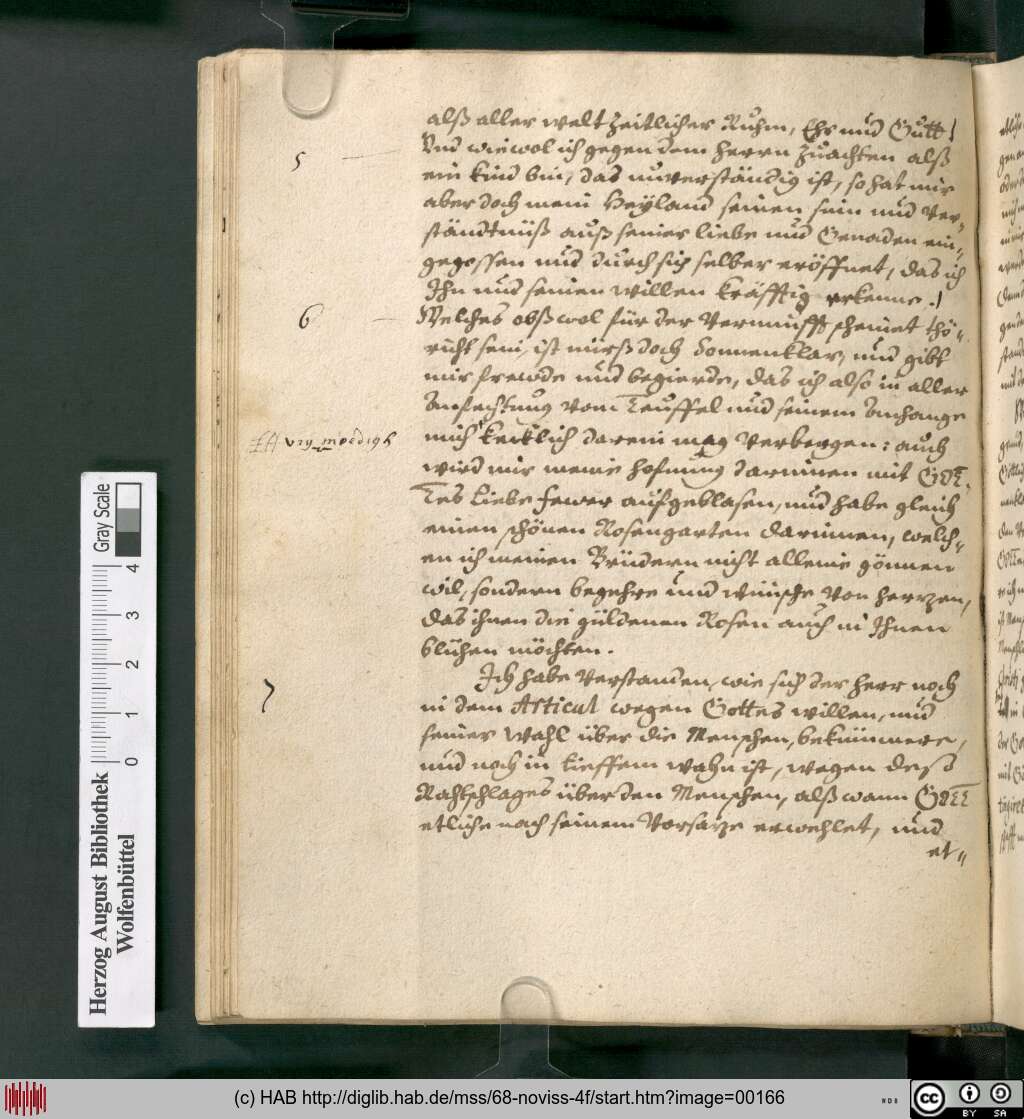 alß aller welt zeitlicher Ruhm, Ehr und Gutt/
5
Und wiewol ich gegen dem Herrn zuachten alß
ein kind bin, das unverständig ist, so hat mir
aber doch mein Heyland seinen sin und Ver-
ständtnüß auß seiner liebe und Genaden ein-
gegossen und durch sich selber eröffnet, das ich
Ihn und seinen willen kräfftig erkenne./
6
Welches obß wol für der Vernunfft scheinet thö-
richt sein, ist mirß doch Sonnenklar, und gibt
mir frewde und begierde, das ich also in aller
Anfechtung vom Teuffel und seinem Anhange
vrymoedigh
mich kecklich darein mag Verbergen: auch
wird mir meine hofnung darinnen mit GOT-
Tes Liebe fewer aufgeblasen, und habe gleich
einen schönen Rosengarten darinnen, welch-
en ich meinen Brüdern nicht alleine gönnen
wil, sondern begehre und wünsche von herzen,
das ihnen die güldenen Rosen auch in Ihnen
blühen möchten.
7
Ich habe Verstanden, wie sich der Herr noch
in dem Articul wegen Gottes willen, und
seiner Wahl über die Menschen, bekümmere,
und noch in tieffem wahn ist, wegen deß
Rahtschlages über den Menschen, alß wann GOTT
etliche nach seinem Vorsatze erwehlet, und
et-
Herzog August Bibliothek
Wolfenbüttel
0 1 2 3 4
Gray Scale
(c) HAB http://diglib.hab.de/mss/68-noviss-4f/start.htm?image=00166
cc BY SA